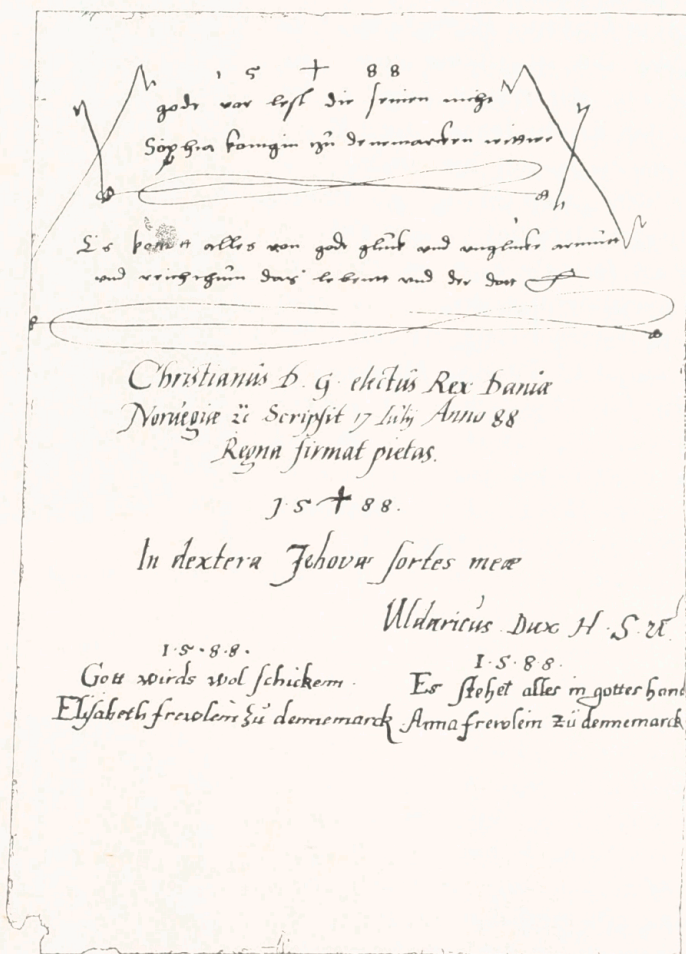 15 + 88
godt vor lest die seinen nicht
Sophia konigin zů denemarcken wittwe
Es komtt alles von godt glůck und unglůcke armůtt
und reichthům das lebentt und der dott
Christianůs D. G. electůs Rex Daniæ
Norůegiæ ꝛc Scripsit 17 Iulij Anno 88
Regna firmat pietas.
15 + 88.
In dextera Jehovæ sortes meæ
Uldaricus Dux H. S. &
1.5.8.8.
Gott wirds wol schickem.
Elisabeth frewlein zů dennemarck
1.5.88.
Es stehet alles in gottes hand
Anna frewlein zů dennemarck